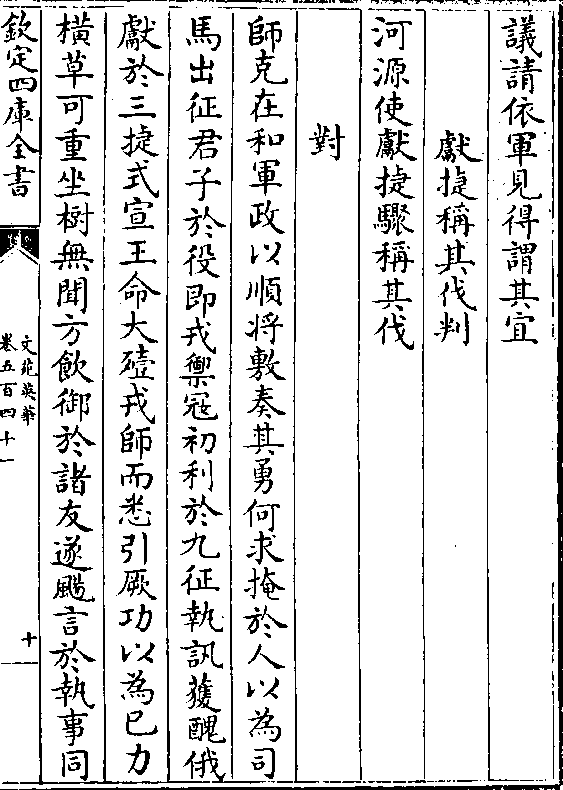 議請依軍見得謂其宜
獻捷稱其伐判
河源使獻捷驟稱其伐
對
師克在和軍政以順將敷奏其勇何求掩於人以為司
馬出征君子於役即戎禦寇初利於九征執訊獲醜俄
獻於三捷式宣王命大殪戎師而悉引厥功以為已力
橫草可重坐樹無聞方飲御於諸友遂颺言於執事同
欽定四庫全書
文苑英華
卷五百四十一
十